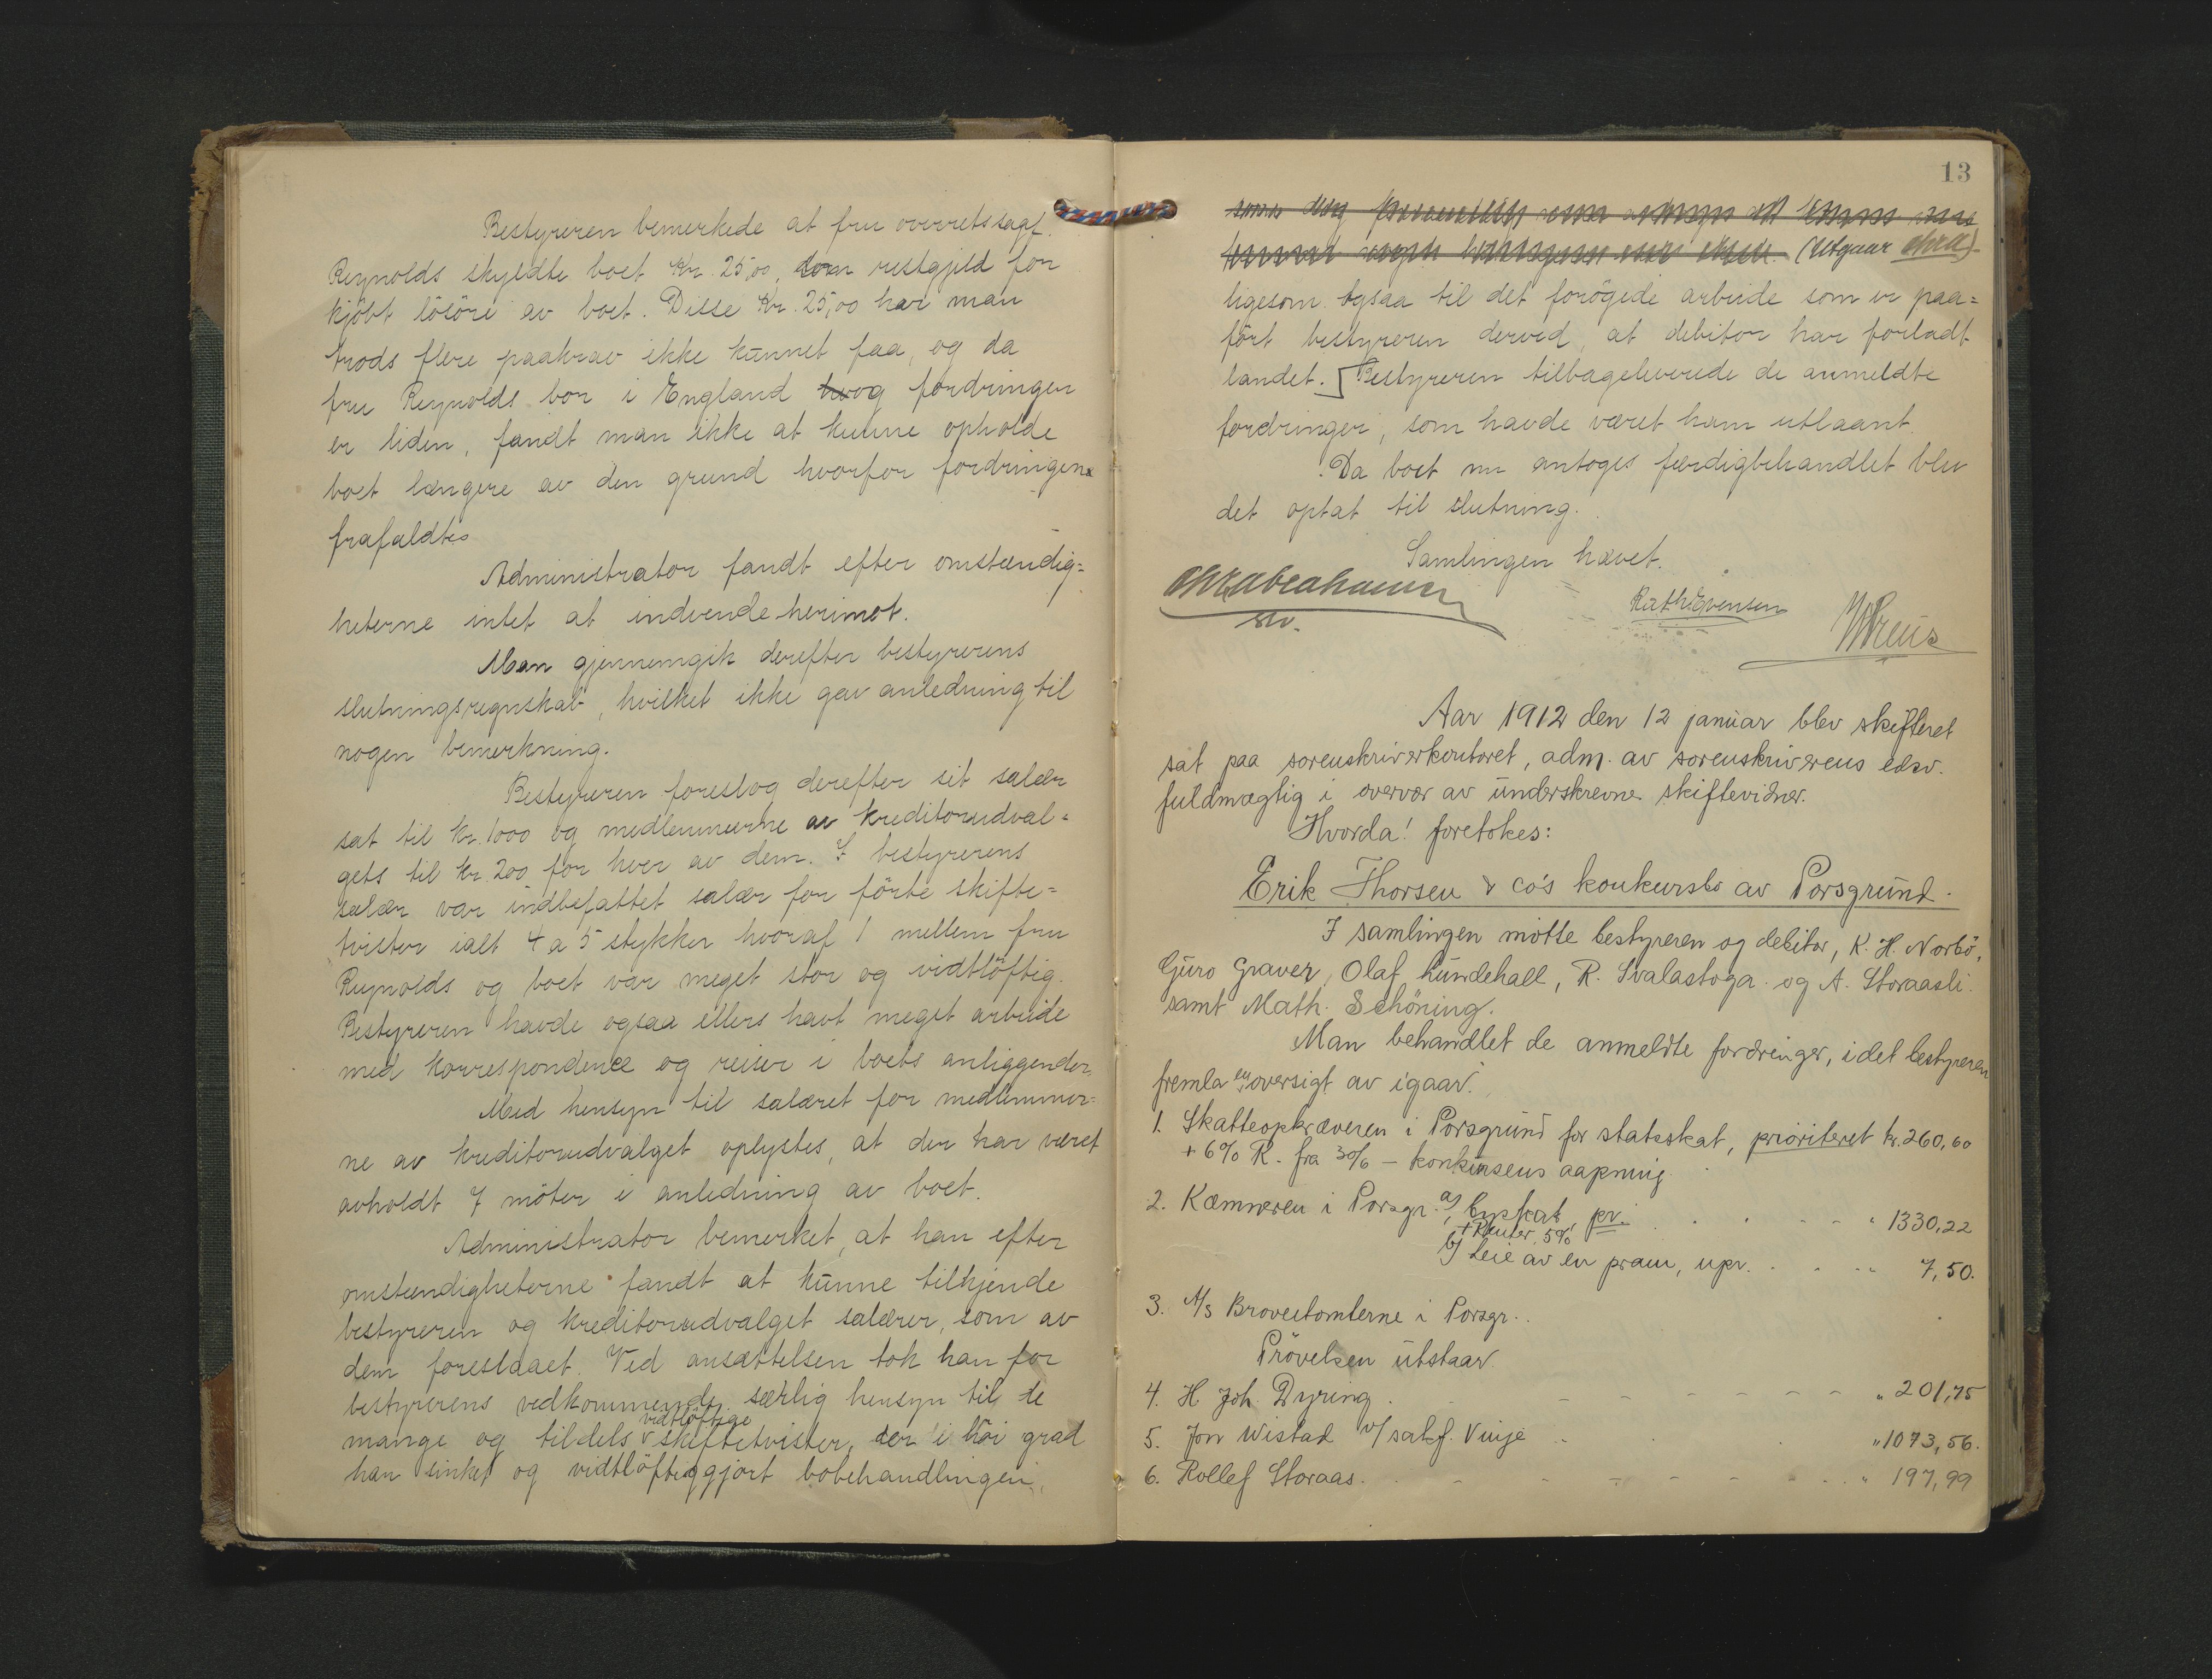 Bestyreren bemerkede at fru overretssagf.
Reynolds skyldte boet Kr. 25,00, som restgjeld for
kjöbt lösöre av boet. Disse Kr. 25,00 har man
trods flere paakrav ikke kunnet faa, og da
fru Reynolds bor i England og fordringen
er liden, fandt man ikke at kunne opholde
boet længere av den grund hvorfor fordringen
frafaldtes
Administrator fandt efter omstændig=
heterne intet at indvende herimot.
Man gjennemgik derefter bestyrerens
slutningsregnskab, hvilket ikke gav anledning til
nogen bemerkning.
Bestyreren foreslog derefter sit salær
sat til Kr. 1000 og medlemmerne av Kreditorudval=
gets til Kr. 200 for hver av dem. I bestyrerens
salær var indbefattet salær for förte skifte=
tvister ialt 4 a 5 stykker hvoraf 1 mellem fru
Reynolds og boet var meget stor og vidtlöftig.
Bestyreren havde ogsaa ellers havt meget arbeide
med Korrespondence og reiser i boets anliggender.
Med hensyn til salæret for medlemmer=
ne av Kreditorudvalget oplystes, at der har været
avholdt 7 möter i anledning av boet.
Administrator bemerket, at han efter
omstændigheterne fandt at kunne tilkjende
bestyreren og Kreditorudvalget salærer, som av
dem foreslaaet. Ved ansættelsen tok han for
bestyrerens vedkommende særlig hensyn til de
mange og tildels vidtlöftige skiftetvister, der i höi grad
har sinket og vidtlöftiggjort bobehandlingen,
13
(Utgaar ChrA)
ligesom ogsaa til det forögede arbeide som er paa=
fört bestyreren derved, at debitor har forladt
landet. Bestyreren tilbageleverede de anmeldte
fordringer, som havde været ham utlaant.
Da boet nu antoges færdigbehandlet blev
det optat til slutning.
Samlingen hævet.
Chr Abrahamsen
Kath Evensen
Aar 1912 den 12 januar blev skifteret
sat paa sorenskriverkontoret, adm. av sorenskriverens edsv.
fuldmægtig i overvær av underskrevne skiftevidner.
Hvorda! foretokes:
Erik Thorsen & co's konkursbo av Porsgrund.
I samlingen mötte bestyreren og debitor, K. H. Norbö,
Guro Graver, Olaf Kundehall, R. Svalastoga og A. Storaasli
samt Math. Schöning.
Man behandlet de anmeldte fordringer, idet bestyreren
fremla en oversigt av igaar.
1. Skatteopkræveren i Porsgrund for statsskat, prioriteret kr. 260,60
+ 6% R. fra 30/6 - konkursens aapning.
2. Kæmneren i Porsgr. a) byskat pr. . . . " 1330,22
+ Renter 5%
b) Leie av en pram, upr. . . . 7,50.
3. A/s Brovertomterne i Porsgr.
Prövelsen utstaar
4. H Joh. Dyring . . . " 201,75
5. Jon Wistad v/ sakf. Vinje . . . " 1073,56.
6. Rollef Storaas . . . " 197,99